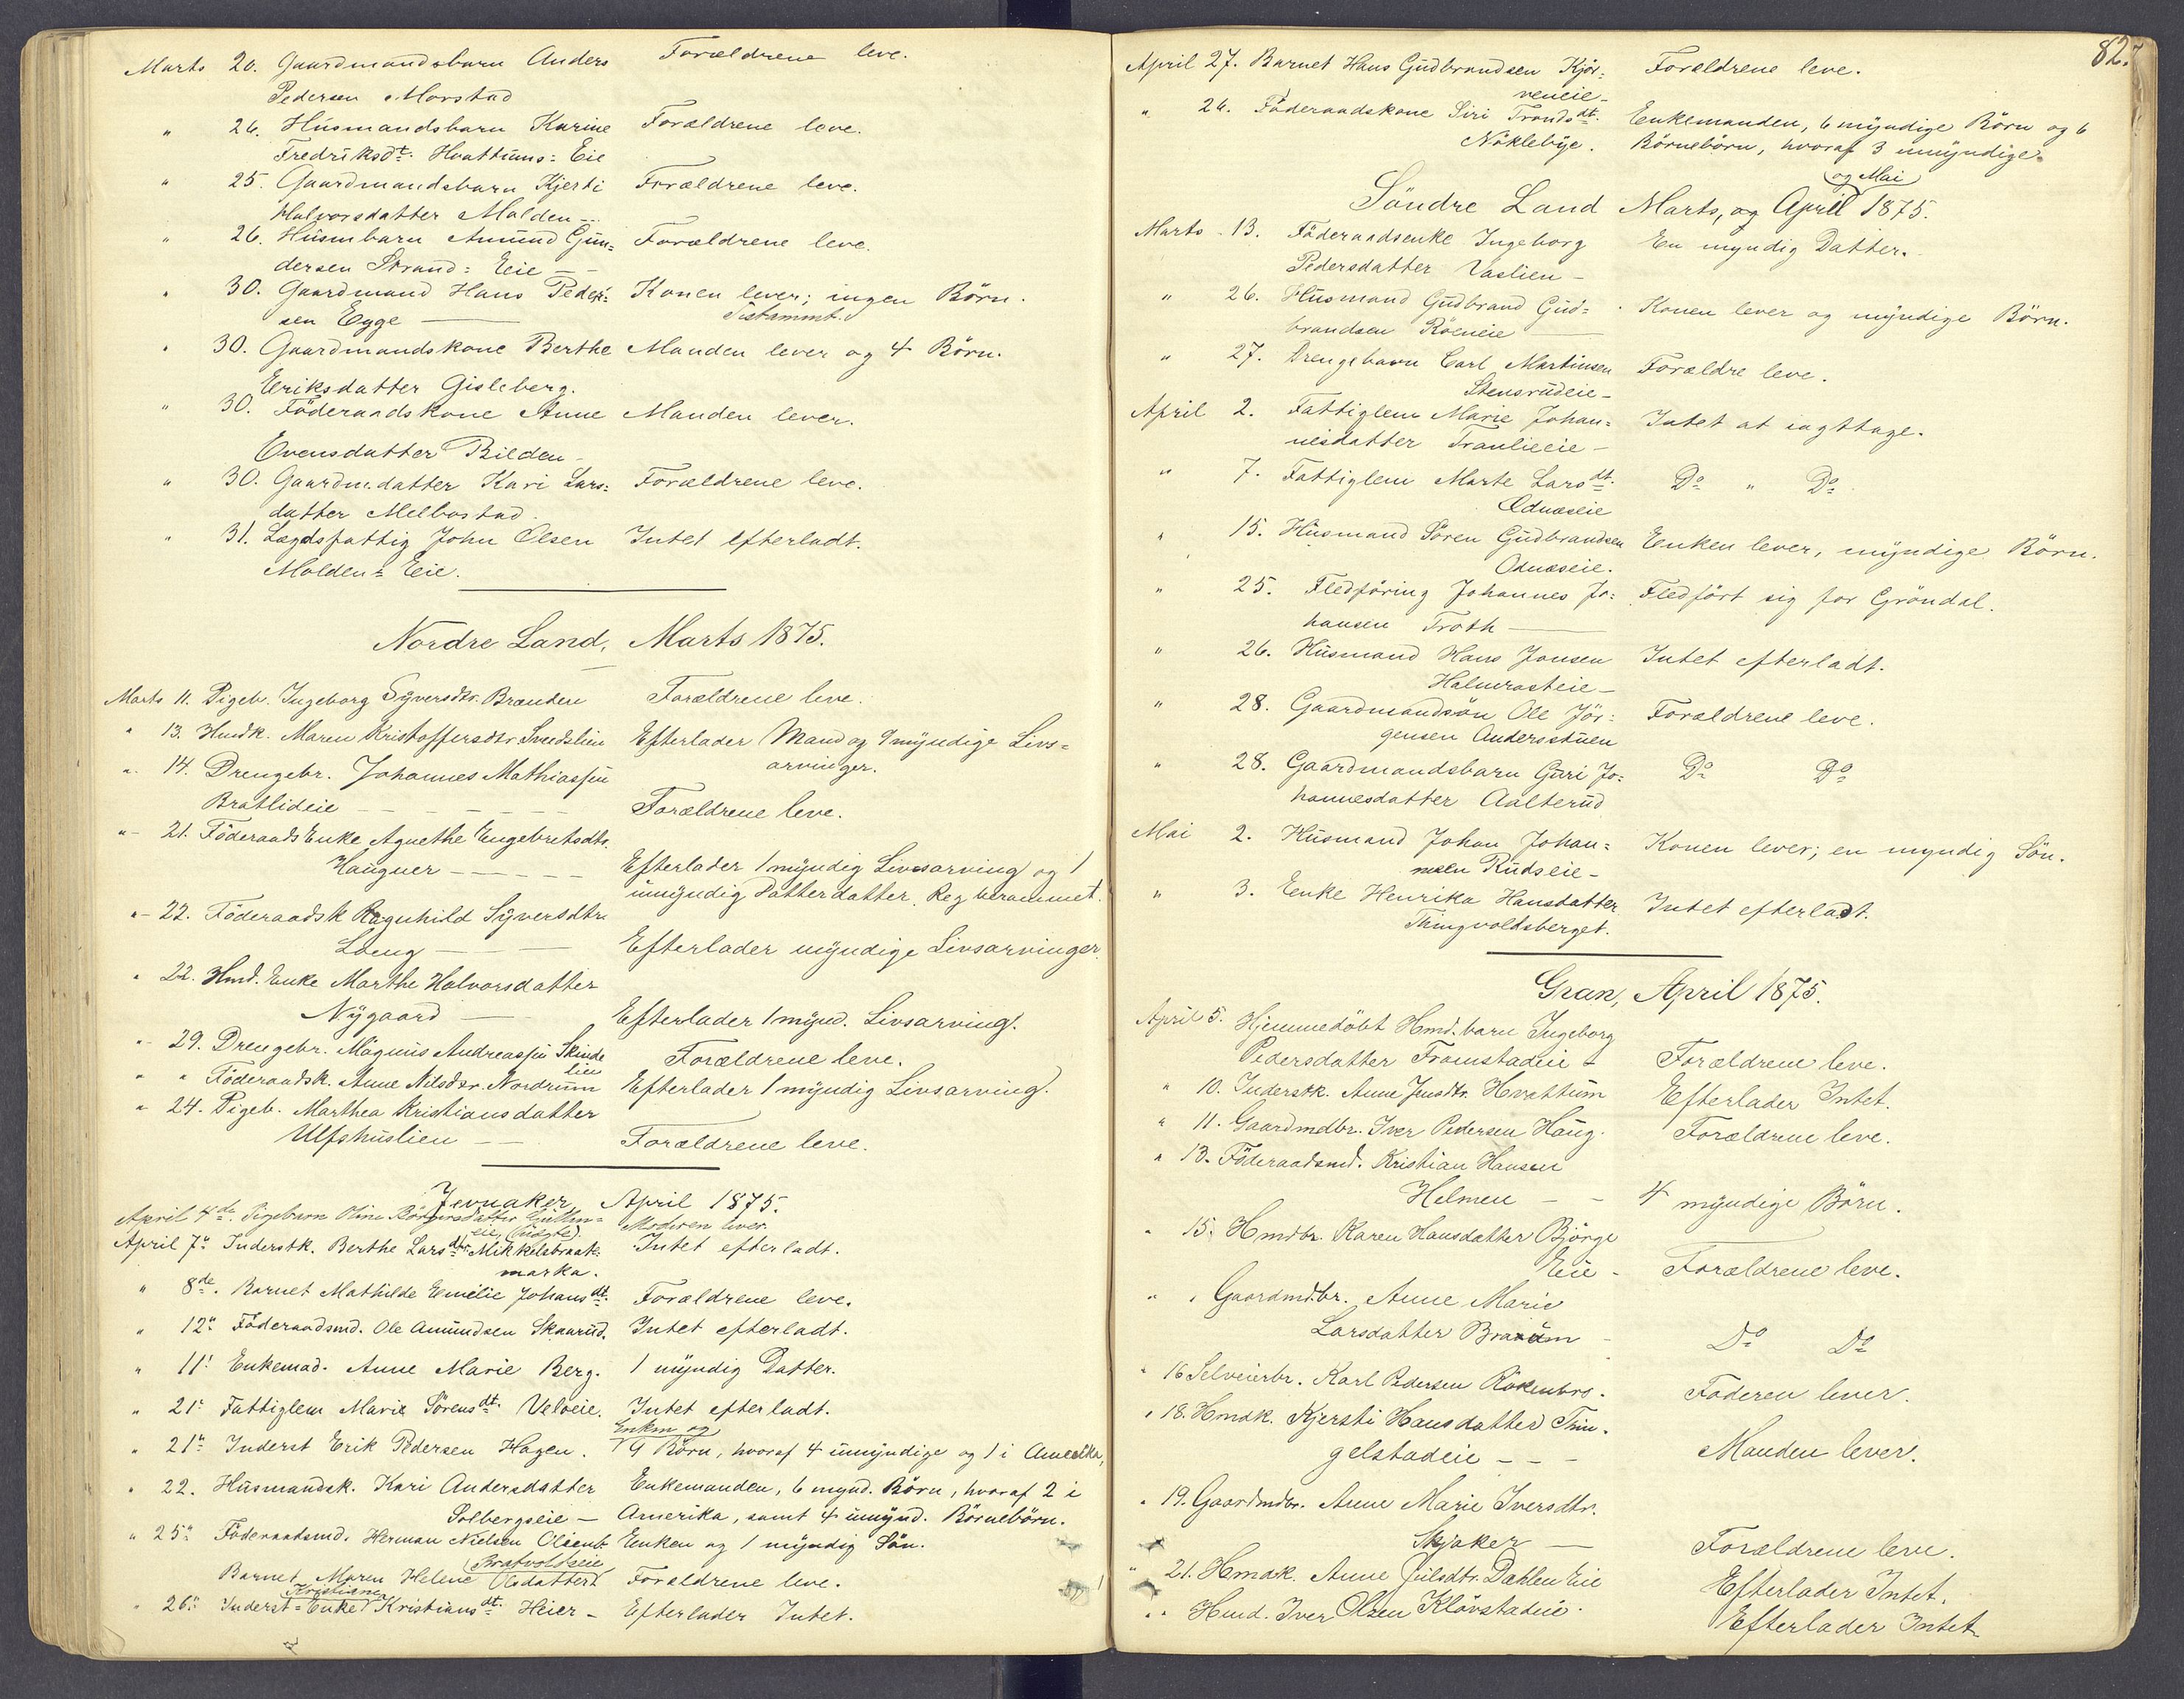 Marts 20. Gaardmandsbarn Anders Forældrene leve.
Pedersen Morstad
" 26. Húsmandsbarn Karine Forældrene leve.
Fredriksdt. Hvattums: Eie
" 25. Gaardmandsbarn Kjersti Forældrene leve.
Halvorsdatter Molden --
" 26. Húsmbarn Amund Gun= Forældrene leve.
dersen Strand: Eie --
" 30. Gaardmand Hans Peder= Konen lever; ingen Börn.
sen Egge — Testammt.
" 30. Gaardmandskone Berthe Manden lever og 4 Börn.
Eriksdatter Gisleberg.
" 30. Föderaadskone Anne Manden lever.
Evensdatter Bilden -
" 30. Gaardm.datter Kari Lars= Forældrene leve.
datter Melbostad.
" 31. Lægdsfattig John Olsen Intet efterladt.
Molden: Eie.
Nordre Land, Marts 1875.
Marts 11. Pigeb. Ingeborg Syversdtr. Brænden Forældrene leve.
" 13. Hmdk. Maren Kristoffersdtr. Smedslien Efterlader Mand og 9 myndige Livs=
arvinger.
" 14. Drengebr. Johannes Mathiassen
Bratlideie -- Forældrene leve.
" 21. Föderaads Enke Agnethe Engebretsdtr.
Haugner ---- Efterlader 1 myndig Livsarving og 1
umyndig Datterdatter. Reg berammet.
" 22. Föderaadsk Ragnhild Syversdtr.
Loeng — Efterlader myndige Livsarvinger.
" 22. Hmd. Enke Marthe Halvorsdatter
Nygaard — Efterlader 1 mynd. Livsarving.
" 29. Drengebr. Magnus Andreassen Skinde
lien Forældrene leve.
" " Föderaadsk. Anne Nilsdtr. Nordrum Efterlader 1 myndig Livsarving.
" 24. Pigeb. Marthea Kristiansdatter
Ulfshuslien -- Forældrene leve.
Jevnaker, April 1875.
April 4de. Pigebarn Oline Moderen lever.
eie, (uægte).
April 7. Inderstk. Berthe Larsdtr. Mikkelsbraat= Intet efterladt.
marka.
" 8de. Barnet Mathilde Emilie Johansdt. Forældrene leve.
" 12. Föderaadsmd. Ole Amundsen Skaarud. Intet efterladt.
" 11. Enkemad. Anne Marie Berg. 1 myndig Datter.
" 21. Fattiglem Marie Sörensdt. Veloeie. Intet efterladt.
Enkm. og
" 21. Inderst Erik Pedersen Hagen. 9 Börn, hvoraf 4 umyndige og 1 i Amerika,
" 22. Húsmandsk. Kari Andersdatter Enkemanden, 6 mynd. Börn, hvoraf 2 i
Solbergseie - Amerika, samt 4 umynd. Börnebörn.
" 25. Föderaadsmd. Herman Nielsen Olsenb= Enken og 1 myndig Sön.
Bratvoldseie
Barnet Maren Helene Olsdatter Forældrene leve.
Kristiane
" 26. Inderst=Enke Kristiansdt. Heier - Efterlader Intet.
82.
April 27. Barnet Hans Gudbrandsen Kjör= Forældrene leve.
veneie -
" 26. Föderaadskone Siri Trondsdt. Enkemanden, 6 myndige Börn og 6
Nöklebye. Börnebörn, hvoraf 3 umyndige.
og Mai
Söndre Land Marts, og April 1875.
Marts 13. Föderaadsenke Ingeborg En myndig Datter.
Pedersdatter Vaslien -
" 26. Húsmand Gudbrand Gud= Konen lever og myndige Börn.
brandsen Röeneie —
" 27. Drengebarn Carl Martinsen Forældre leve.
Stensrudeie -
April 2. Fattiglem Marie Johan= Intet at iagttage.
nesdatter Tranlieeie -
" 7. Fattiglem Marte Larsdt. Do " Do.
Odnæseie
" 15. Húsmand Sören Gudbrandsen Enken lever, myndige Börn.
Odnæseie.
" 25. Fledföring Johannes Jo= Fledfört sig for Gröndal.
hansen Troth —
" 26. Húsmand Hans Jonsen Intet efterladt.
Halmrasteie -
" 28. Gaardmandsön Ole Jör= Forældrene leve.
gensen Andersstuen
" 28. Gaardmandsbarn Guri Jo= Do Do
hannesdatter Aalterud
Mai 2. Húsmand Johan Johan= Konen lever; en myndig Sön.
nesen Rudseie -
" 3. Enke Henrika Hansdatter Intet efterladt.
Thingvoldsberget.
Gran, April 1875.
April 5. Hjemmedöbt Hmd.barn Ingeborg
Pedersdatter Framstadeie - Forældrene leve.
" 10. Inderstk. Anne Jensdtr. Hvattum Efterlader Intet.
" 11. Gaardmdbr. Iver Pedersen Haug. Forældrene leve.
" 13. Föderaadsmd. Kristian Hansen
Helmen -- 4 myndige Börn.
" 15. Hmdbr. Karen Hansdatter Björge
Eie - Forældrene leve.
" " Gaardmd.br. Anne Marie
Larsdatter - Do Do
" 16 Selveierbr. Karl Pedersen Faderen lever.
" 18. Hmdk. Kjersti Hansdatter Thin=
gelstadeie --- Manden lever.
" 19. Gaardmdbr. Anne Marie Iversdtr.
Skjaker — Forældrene leve.
" 21. Hmdk. Anne Dahlen Eie Efterlader Intet.
" " Hmd. Iver Olsen Klövstadeie. Efterlader Intet